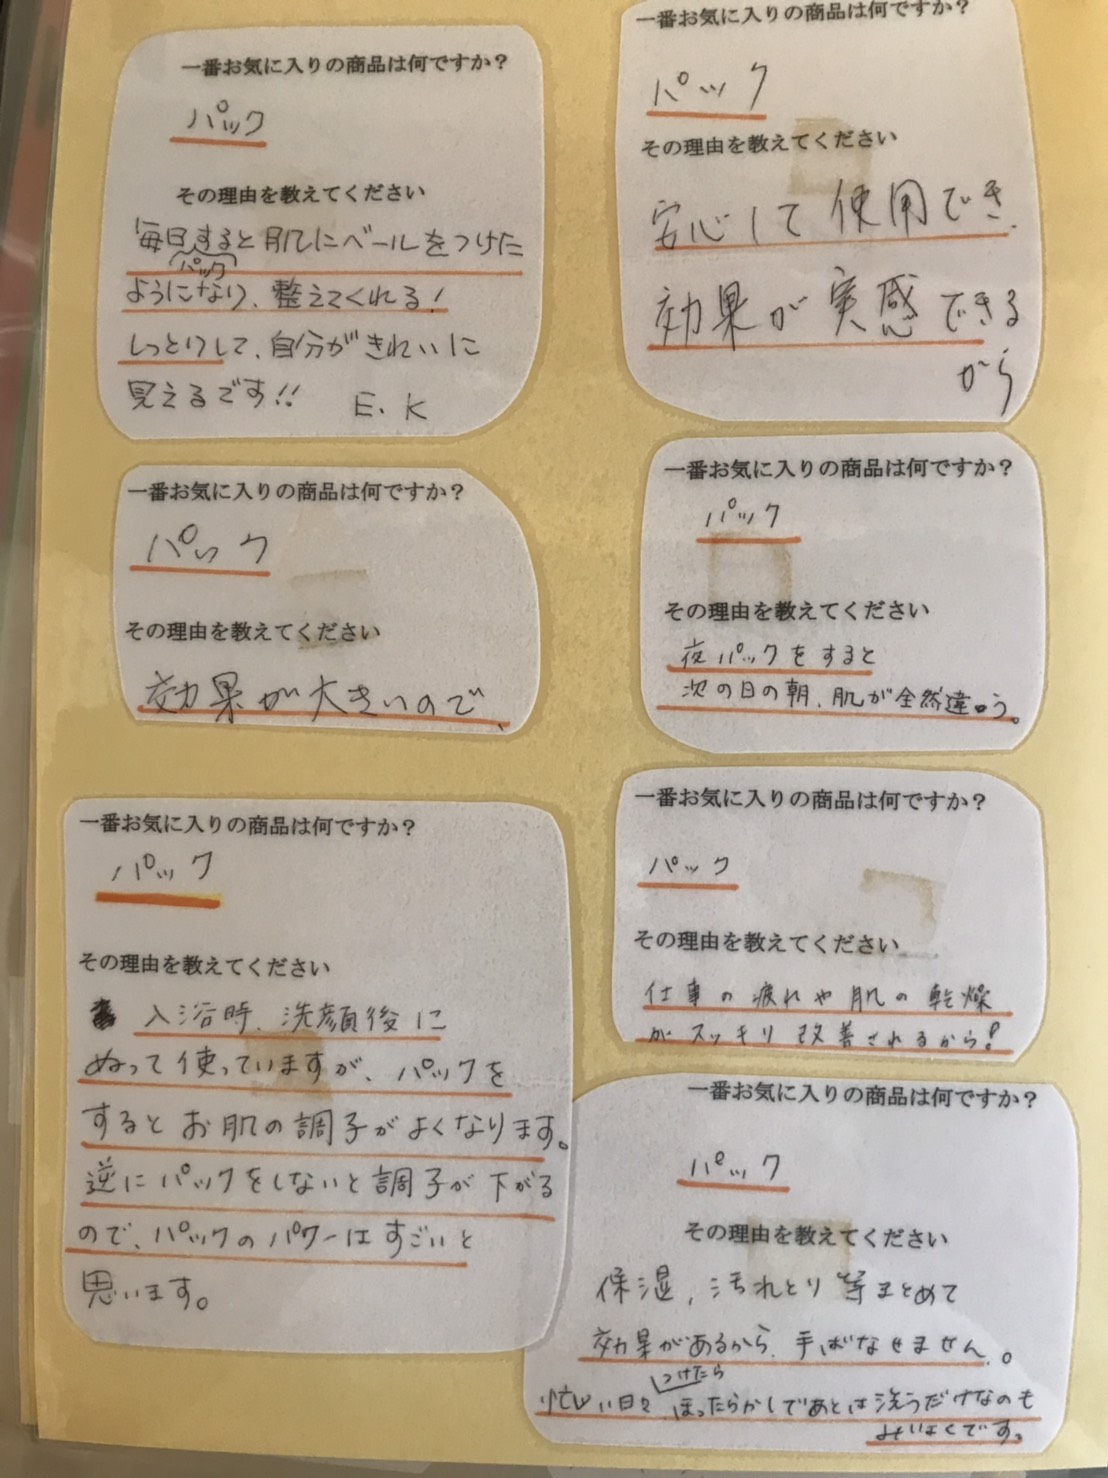 一番お気に入りの商品は何ですか？
パック
その理由を教えてください
毎日すると肌にベールをつけた
パック
ようになり、整えてくれる！
しっとりして、自分がきれいに
見えるです！！ E.K
一番お気に入りの商品は何ですか？
パック
その理由を教えてください
安心して使用でき
効果が実感できる
から
一番お気に入りの商品は何ですか？
パック
その理由を教えてください
効果が大きいので、
一番お気に入りの商品は何ですか？
パック
その理由を教えてください
夜パックをすると
次の日の朝、肌が全然違う。
一番お気に入りの商品は何ですか？
パック
その理由を教えてください
入浴時、洗顔後に
ぬって使っていますが、パックを
するとお肌の調子がよくなります。
逆にパックをしないと調子が下がる
ので、パックのパワーはすごいと
思います。
一番お気に入りの商品は何ですか？
パック
その理由を教えてください
仕事の疲れや肌の乾燥
がスッキリ改善されるから！
一番お気に入りの商品は何ですか？
パック
その理由を教えてください
保湿、汚れとり等まとめて
効果があるから、手ばなせません。
つけたら
忙しい日々、ほったらかしであとは洗うだけなのも
みりょくです。